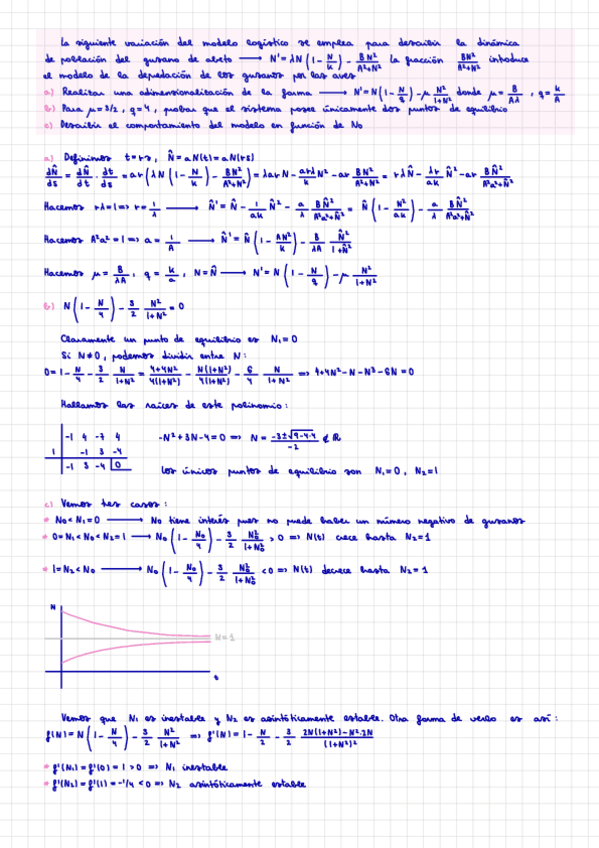 La siguiente variación del modelo logístico se emplea para describir la dinámica
de población del gusano de abeto ⟶ N' = λN(1 - N/k) - BN²/(A²+N²) La fracción BN²/(A²+N²) introduce
el modelo de la depredación de los gusanos por las aves
a) Realizar una adimensionalización de la forma ⟶ N' = N(1 - N/q) - μ N²/(1+N²) donde μ = B/(Aλ), q = k/A
b) Para μ = 3/2, q = 4, probar que el sistema posee únicamente dos puntos de equilibrio
c) Describir el comportamiento del modelo en función de N₀
a) Definimos t = rs, N̂ = aN(t) = aN(rs)
dN̂/ds = dN̂/dt · dt/ds = ar(λN(1 - N/k) - BN²/(A²+N²)) = λarN - arλ/k N² - ar BN²/(A²+N²) = rλN̂ - λr/ak N̂² - ar BN̂²/(A²a²+N̂²)
Hacemos rλ = 1 ⇒ r = 1/λ ⟶ N̂' = N̂ - 1/ak N̂² - a/λ BN̂²/(A²a²+N̂²) = N̂(1 - N²/ak) - a/λ BN̂²/(A²a²+N̂²)
Hacemos A²a² = 1 ⇒ a = 1/A ⟶ N̂' = N̂(1 - AN²/k) - B/λA N̂²/(1+N̂²)
Hacemos μ = B/λA, q = k/a, N = N̂ ⟶ N' = N(1 - N/q) - μ N²/(1+N²)
b) N(1 - N/4) - 3/2 N²/(1+N²) = 0
Claramente un punto de equilibrio es N₁ = 0
Si N ≠ 0, podemos dividir entre N:
0 = 1 - N/4 - 3/2 N/(1+N²) = (4+4N²)/4(1+N²) - N(1+N²)/4(1+N²) - 6/4 N/(1+N²) ⇒ 4+4N²-N-N³-6N = 0
Hallamos las raíces de este polinomio:
-1 4 -7 4
1 -1 3 -4
-1 3 -4 0
-N²+3N-4 = 0 ⇒ N = (-3±√(9-4·4))/-2 ∉ ℝ
Los únicos puntos de equilibrio son N₁ = 0, N₂ = 1
c) Vemos tres casos:
* N₀ < N₁ = 0 ⟶ No tiene interés pues no puede haber un número negativo de gusanos
* 0 = N₁ < N₀ < N₂ = 1 ⟶ N₀(1 - N₀/4) - 3/2 N₀²/(1+N₀²) > 0 ⇒ N(t) crece hasta N₂ = 1
* 1 = N₂ < N₀ ⟶ N₀(1 - N₀/4) - 3/2 N₀²/(1+N₀²) < 0 ⇒ N(t) decrece hasta N₂ = 1
N
N = 1
t
Vemos que N₁ es inestable y N₂ es asintóticamente estable. Otra forma de verlo es así:
f(N) = N(1 - N/4) - 3/2 N²/(1+N²) ⇒ f'(N) = 1 - N/2 - 3/2 (2N(1+N²)-N²·2N)/(1+N²)²
* f'(N₁) = f'(0) = 1 > 0 ⇒ N₁ inestable
* f'(N₂) = f'(1) = -1/4 < 0 ⇒ N₂ asintóticamente estable